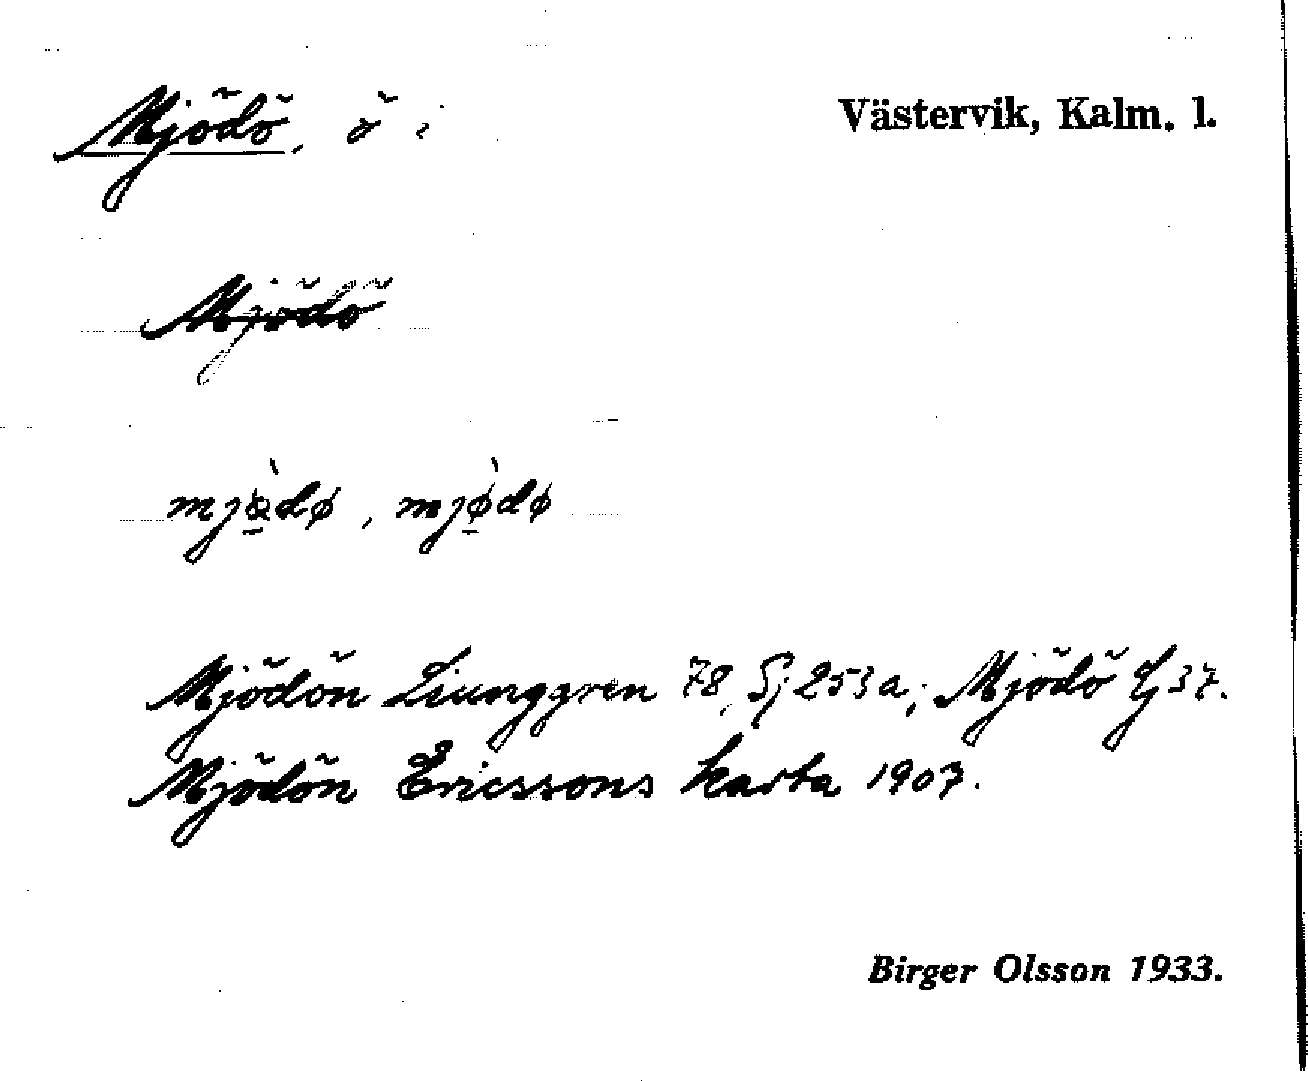 Mjödö, ö i Västervik, Kalm. l.
Mjödö
mjø̀dø, mjø̀dø
Mjödön Liunggren 78, Sj 253a; Mjödö Gj 37.
Mjödön Ericssons karta 1907.
Birger Olsson 1933.